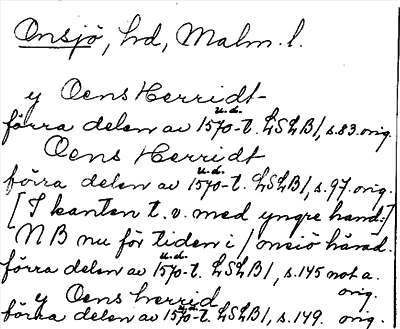 Onsjö, hd, Malm. l.
y Oens Herridt
förra delen av 1570-t. LSLB1, s.83. orig.
u.å.
Oens Herridt
förra delen av 1570-t. LSLB1, s.97. orig.
u.å.
[I kanten t.v. med yngre hand:]
NB nu för tiden i onsiö härad.
förra delen av 1570-t. LSLB1, s.145 not a.
u.å.
orig.
y Oens herrid
förra delen av 1570-t. LSLB1, s.149. orig.
u.å.